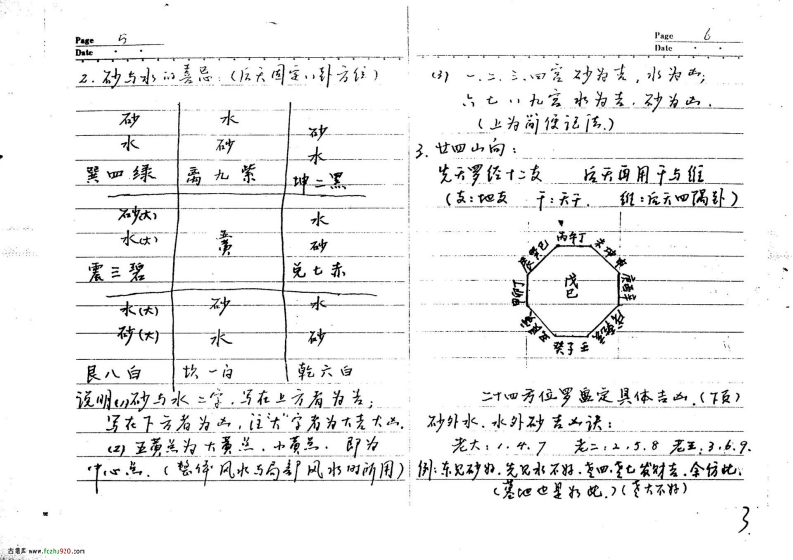 Page 5
Date
2. 砂与水的喜忌:(后天固定八卦方位)
砂 水 砂
水 砂 水
巽四绿 离九紫 坤二黑
砂(大) 水
水(大) 五黄 砂
震三碧 兑七赤
水(大) 砂 水
砂(大) 水 砂
艮八白 坎一白 乾六白
说明(1)砂与水二字,写在上方者为吉;
写在下方者为凶,注"大"字者为大吉大凶.
(2) 五黄点为大黄点,小黄点,即为
中心点.(整体风水与局部风水的所用)
Page 6
Date
(3) 一.二.三.四宫砂为吉,水为凶;
六七八九宫水为吉,砂为凶.
(上为简便记法.)
3. 廿四山向:
先天罗经十二支 后天再用干与维
(支:地支 干:天干. 维:后天四隅卦)
丙午丁
辰巽巳
未坤申
甲卯丁
戊
巳
庚酉辛
癸子壬
二十四方位罗盘定具体吉凶.(下页)
砂外水、水外砂吉凶诀:
老大:1.4.7 老二:2.5.8 老三:3.6.9.
例:东见砂好.先见水不好.老四.老七发财吉.余仿此.
(墓地也是如此.)(老大不好)
3.
古籍库 www.fczhu920.com